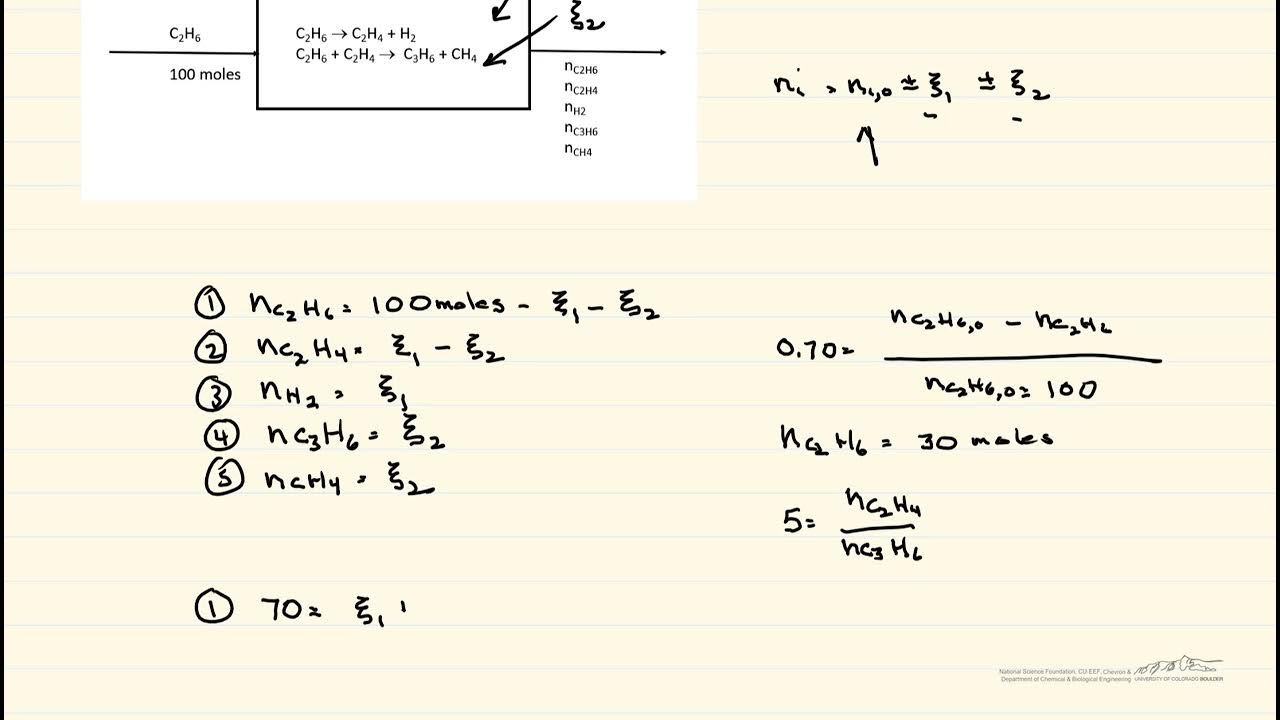 ξ₂
C₂H₆
C₂H₆ → C₂H₄ + H₂
C₂H₆ + C₂H₄ → C₃H₆ + CH₄
100 moles
nC2H6
nC2H4
nH2
nC3H6
nCH4
nᵢ = nᵢ,₀ ± ξ₁ ± ξ₂
① nC₂H₆ = 100 moles - ξ₁ - ξ₂
② nC₂H₄ = ξ₁ - ξ₂
③ nH₂ = ξ₁
④ nC₃H₆ = ξ₂
⑤ nCH₄ = ξ₂
0.70 = (nC₂H₆,₀ - nC₂H₆) / (nC₂H₆,₀ = 100)
nC₂H₆ = 30 moles
5 = nC₂H₄ / nC₃H₆
① 70 = ξ₁
National Science Foundation, CU-EEF, Chevron &
Department of Chemical & Biological Engineering UNIVERSITY OF COLORADO BOULDER